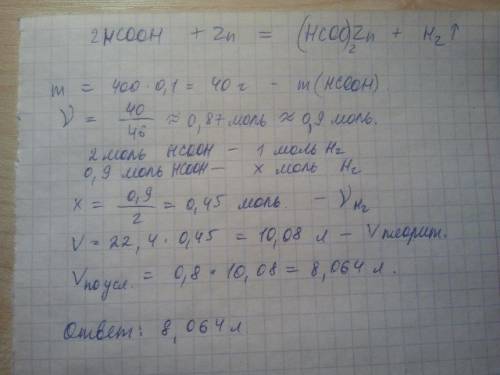 2HCOOH + Zn = (HCOO)₂Zn + H₂↑
m = 400 · 0,1 = 40 г - m(HCOOH)
ν = 40/46 ≈ 0,87 моль ≈ 0,9 моль.
2 моль HCOOH — 1 моль H₂
0,9 моль HCOOH — x моль H₂
x = 0,9/2 = 0,45 моль - ν H₂
V = 22,4 · 0,45 = 10,08 л - V теорит.
V по усл. = 0,8 · 10,08 = 8,064 л.
Ответ: 8,064 л